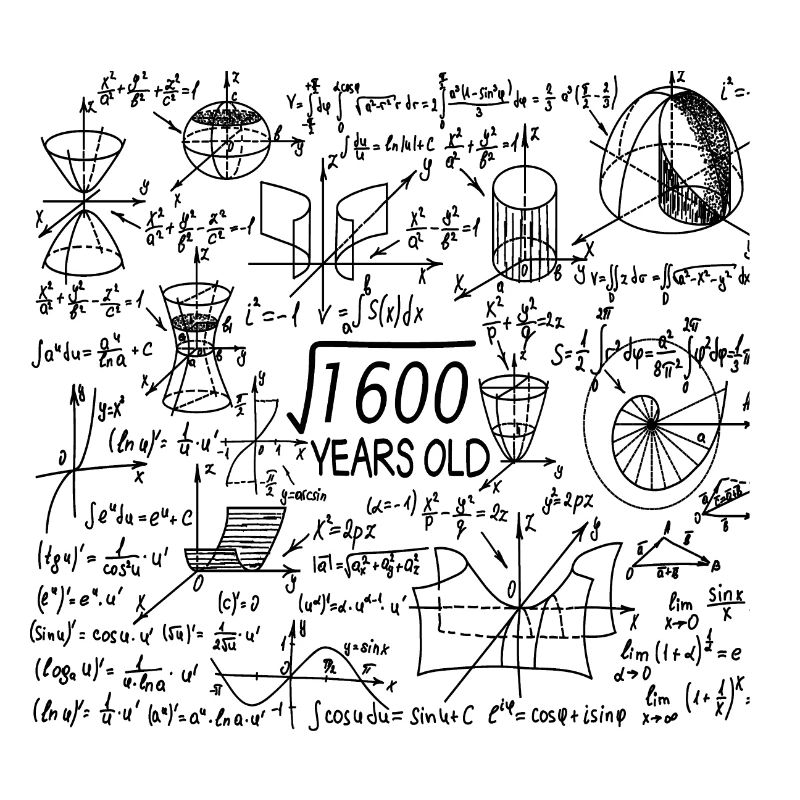 x²/a² + y²/b² + z²/c² = 1
V = ∫_{-π/2}^{+π/2} dφ ∫_0^{a cosφ} √(a²-r²) r dr = 2∫_0^π a³(1-sin³φ)/3 dφ = 2/3 a³(π/2 - 2/3)
i² = -
∫ du/u = ln|u| + C
x²/a² + y²/b² = 1
x²/a² + y²/b² - z²/c² = -1
x²/a² - y²/b² = 1
V = ∬_D z dσ = ∬_D √(a²-x²-y²) dx
x²/a² + y²/b² - z²/c² = 1
i² = -1
V = ∫_a^b S(x)dx
x²/p + y²/q = 2z
∫a^u du = a^u/ln a + C
S = 1/2 ∫_0^{2π} r² dφ = a²/8π² ∫_0^{2π} φ² dφ = 1/3 π
√1600
YEARS OLD
y=x³
(ln u)' = 1/u · u'
y=arcsin
∫e^u du = e^u + C
x² = 2pz
(α=-1) x²/p - y²/q = 2z
y² = 2pz
(tg u)' = 1/cos²u · u'
|a| = √(a²x + a²y + a²z)
(e^u)' = e^u · u'
(c)' = 0
(u^α)' = α · u^{α-1} · u'
lim x→0 sin x/x
(sin u)' = cos u · u'
(√u)' = 1/2√u · u'
y=sin x
lim α→0 (1+α)^{1/2} = e
(log_a u)' = 1/u·ln a · u'
(ln u)' = 1/u · u'
(a^u)' = a^u · ln a · u'
∫cos u du = sin u + C
e^{iφ} = cosφ + i sinφ
lim x→∞ (1 + 1/x)^x =